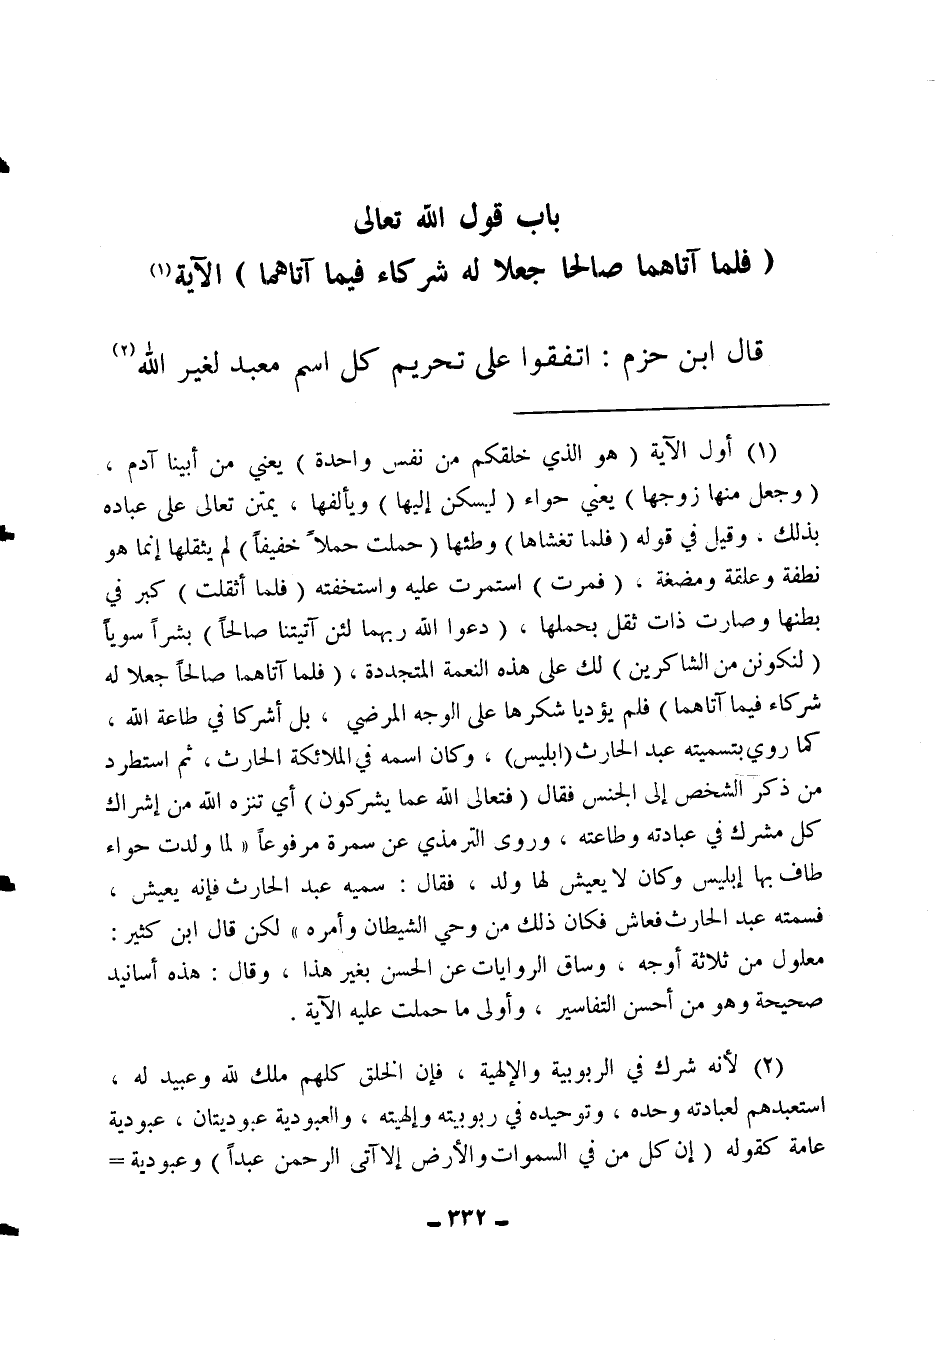 باب قول الله تعالى
( فلما آتاهما صالحا جعلا له شركاء فيما آتاهما ) الآية(١)
قال ابن حزم : اتفقوا على تحريم كل اسم معبد لغير الله(٢)
(١) أول الآية ( هو الذي خلقكم من نفس واحدة ) يعني من أبينا آدم ،
( وجعل منها زوجها ) يعني حواء ( ليسكن إليها ) ويألفها ، يمتن تعالى على عباده
بذلك ، وقيل في قوله ( فلما تغشاها ) وطئها ( حملت حملاً خفيفاً ) لم يثقلها إنما هو
نطفة وعلقة ومضغة ، ( فمرت ) استمرت عليه واستخفته ( فلما أثقلت ) كبر في
بطنها وصارت ذات ثقل بحملها ، ( دعوا الله ربهما لئن آتيتنا صالحاً ) بشراً سوياً
( لنكونن من الشاكرين ) لك على هذه النعمة المتجددة ، ( فلما آتاهما صالحاً جعلا له
شركاء فيما آتاهما ) فلم يؤديا شكرها على الوجه المرضي ، بل أشركا في طاعة الله ،
كما روي بتسميته عبد الحارث (ابليس) ، وكان اسمه في الملائكة الحارث ، ثم استطرد
من ذكر الشخص إلى الجنس فقال ( فتعالى الله عما يشركون ) أي تنزه الله من إشراك
كل مشرك في عبادته وطاعته ، وروى الترمذي عن سمرة مرفوعاً « لما ولدت حواء
طاف بها إبليس وكان لا يعيش لها ولد ، فقال : سميه عبد الحارث فإنه يعيش ،
فسمته عبد الحارث فعاش فكان ذلك من وحي الشيطان وأمره » لكن قال ابن كثير :
معلول من ثلاثة أوجه ، وساق الروايات عن الحسن بغير هذا ، وقال : هذه أسانيد
صحيحة وهو من أحسن التفاسير ، وأولى ما حملت عليه الآية .
(٢) لأنه شرك في الربوبية والإلهية ، فإن الخلق كلهم ملك لله وعبيد له ،
استعبدهم لعبادته وحده ، وتوحيده في ربوبيته وإلهيته ، والعبودية عبوديتان ، عبودية
عامة كقوله ( إن كل من في السموات والأرض إلا آتى الرحمن عبداً ) وعبودية =
ـ ٣٣٢ ـ